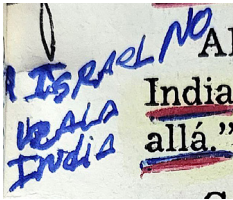 A ISRAEL NO
VEALA
INDIA
India
allá.”